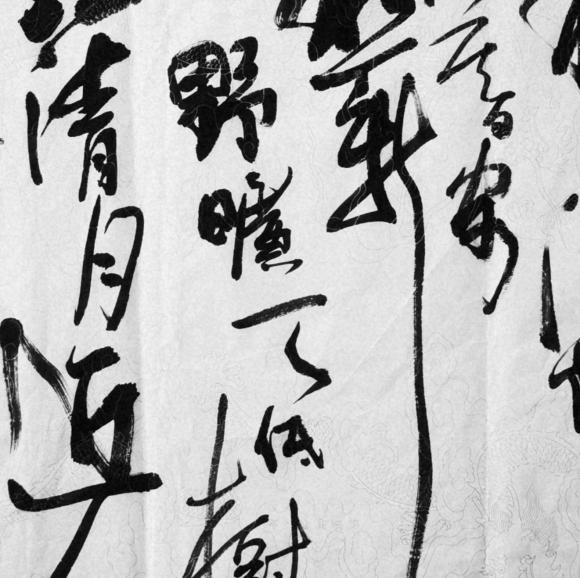 暮客
新
野曠天低樹
清月近